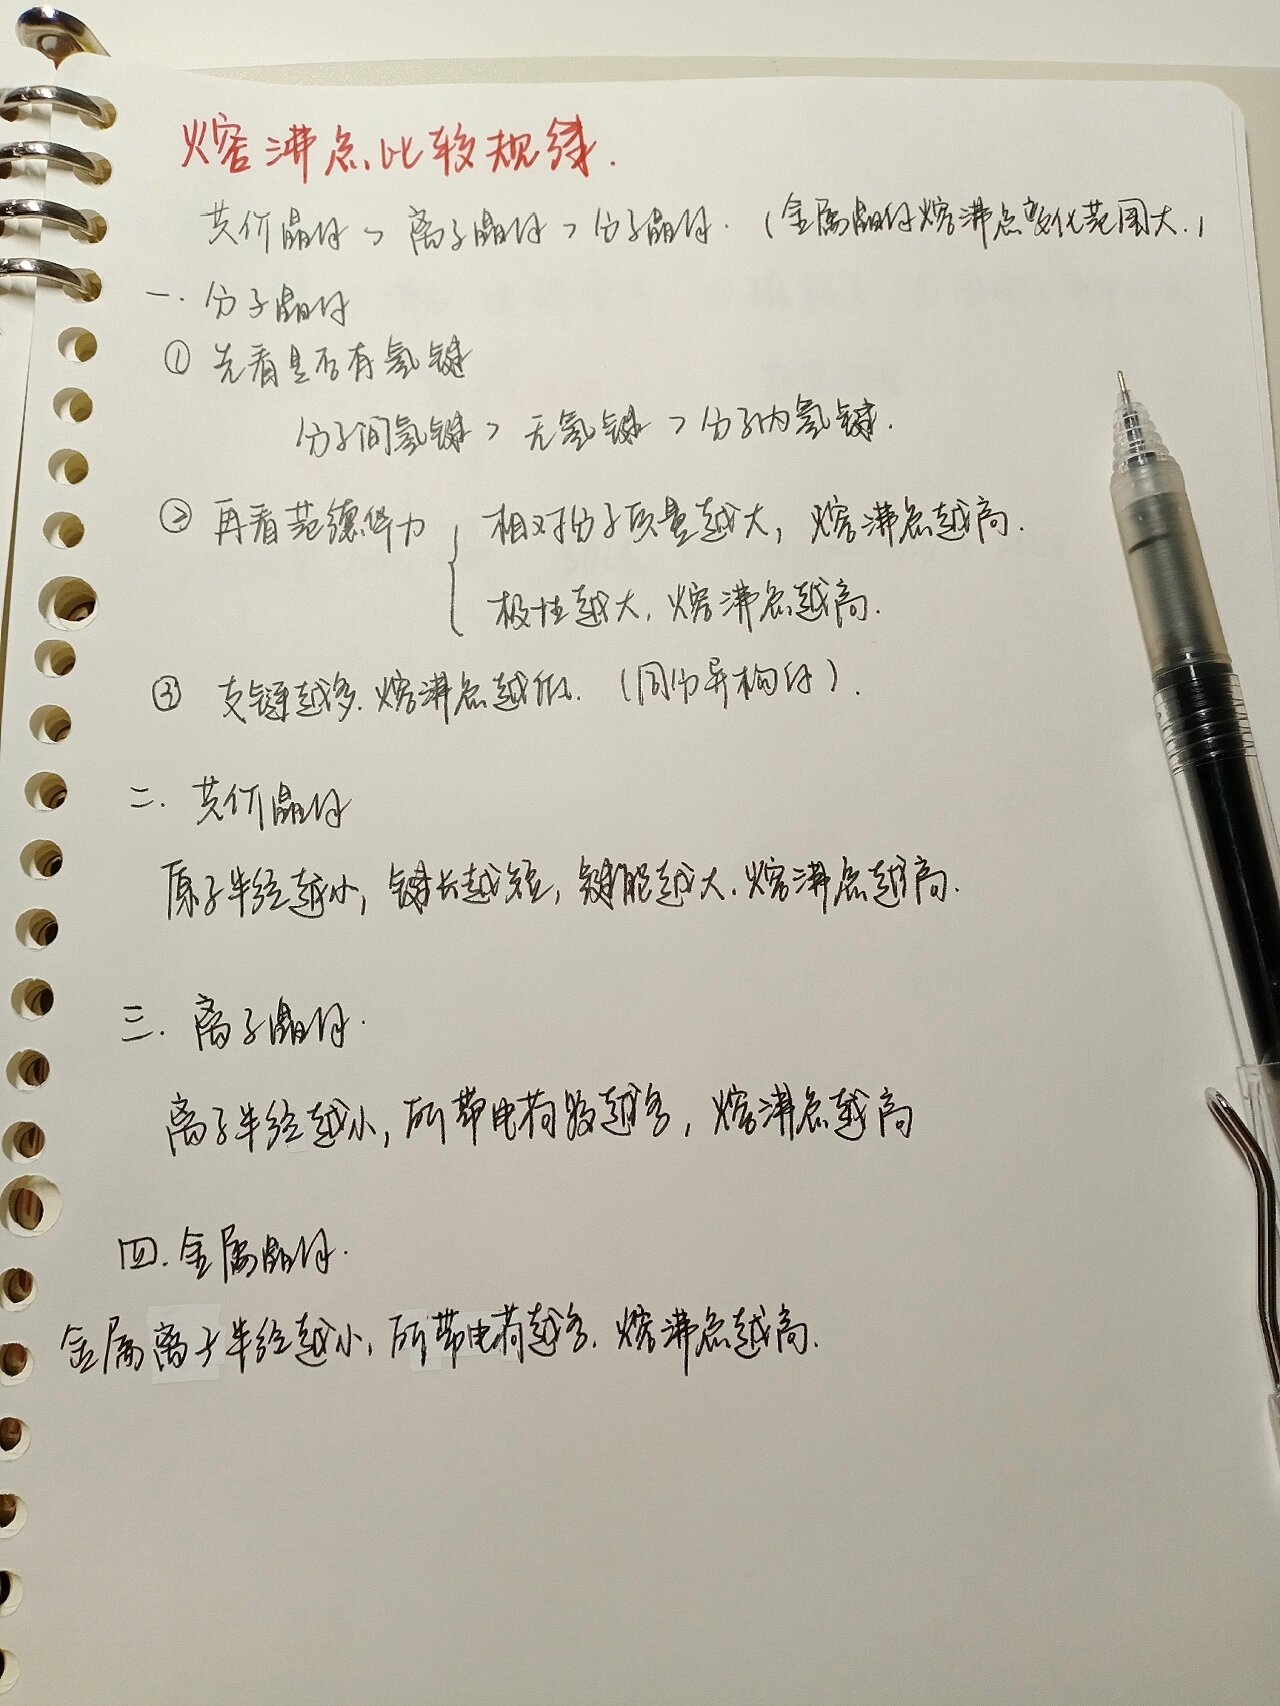 熔沸点比较规律.
共价晶体 > 离子晶体 > 分子晶体. (金属晶体熔沸点变化范围大.)
一. 分子晶体
① 先看是否有氢键
分子间氢键 > 无氢键 > 分子内氢键.
② 再看范德华力 { 相对分子质量越大, 熔沸点越高.
极性越大, 熔沸点越高.
③ 支链越多, 熔沸点越低. (同分异构体).
二. 共价晶体
原子半径越小, 键长越短, 键能越大, 熔沸点越高.
三. 离子晶体.
离子半径越小, 所带电荷数越多, 熔沸点越高
四. 金属晶体.
金属离子半径越小, 所带电荷越多, 熔沸点越高.